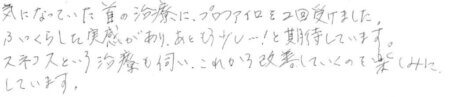 気になっていた首の治療に、プロファイロを2回受けました。
ふっくらした実感があり、あともう少し…!と期待しています。
スネコスという治療も伺い、これから改善していくのも楽しみに
しています。